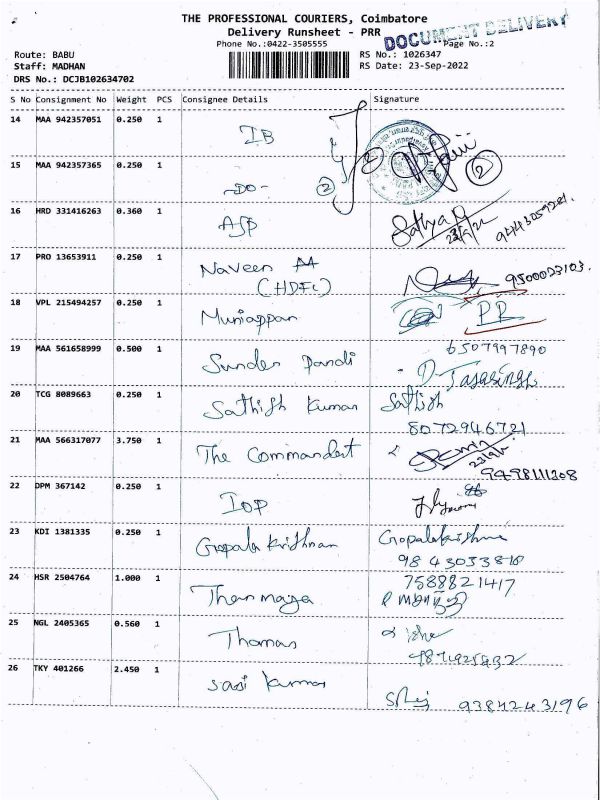 THE PROFESSIONAL COURIERS, Coimbatore
Delivery Runsheet - PRR
DOCUMENT DELIVERY
Phone No.:0422-3505555
Page No.:2
Route: BABU
RS No.: 1026347
Staff: MADHAN
RS Date: 23-Sep-2022
DRS No.: DCJB102634702
S No Consignment No Weight PCS Consignee Details Signature
14 MAA 942357051 0.250 1
IB
15 MAA 942357365 0.250 1
-DO- 2 2
16 HRD 331416263 0.360 1
ASP Sathya
17 PRO 13653911 0.250 1
Naveen
(HDFC) 9500023103.
18 VPL 215494257 0.250 1
Muniappan PR
19 MAA 561658999 0.500 1 6507997890
Sunder Pandi
20 TCG 8089663 0.250 1
Sathish Kumar Sathish
8072946721
21 MAA 566317077 3.750 1
The Commandant
9498111208
22 DPM 367142 0.250 1
IOP
23 KDI 1381335 0.250 1
Gopala Krishnan Gopalakrishna
24 HSR 2504764 1.000 1 7588821417
25 NGL 2405365 0.560 1
Thomas
26 TKY 401266 2.450 1
Sasi kumar
9384243196